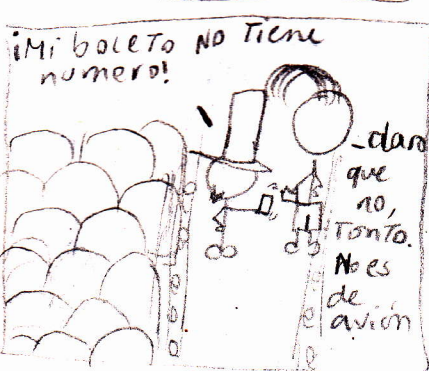 ¡Mi boleto NO Tiene
numero!
_claro
que
no,
TonTo.
No es
de
avión